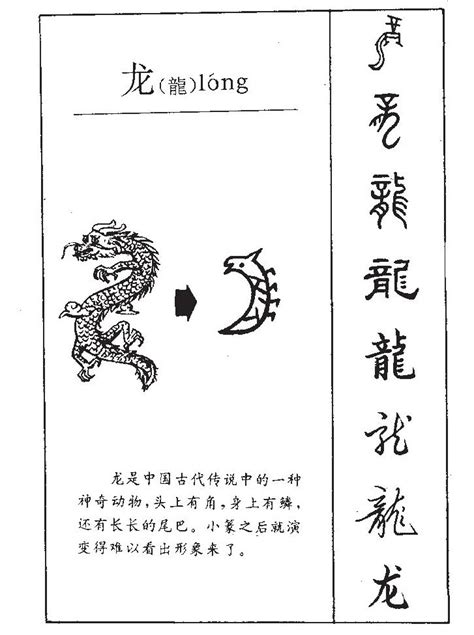 龙(龍)lóng
龙是中国古代传说中的一种
神奇动物，头上有角，身上有鳞，
还有长长的尾巴。小篆之后就演
变得难以看出形象来了。
龍
龍
龍
龍
龍
龙